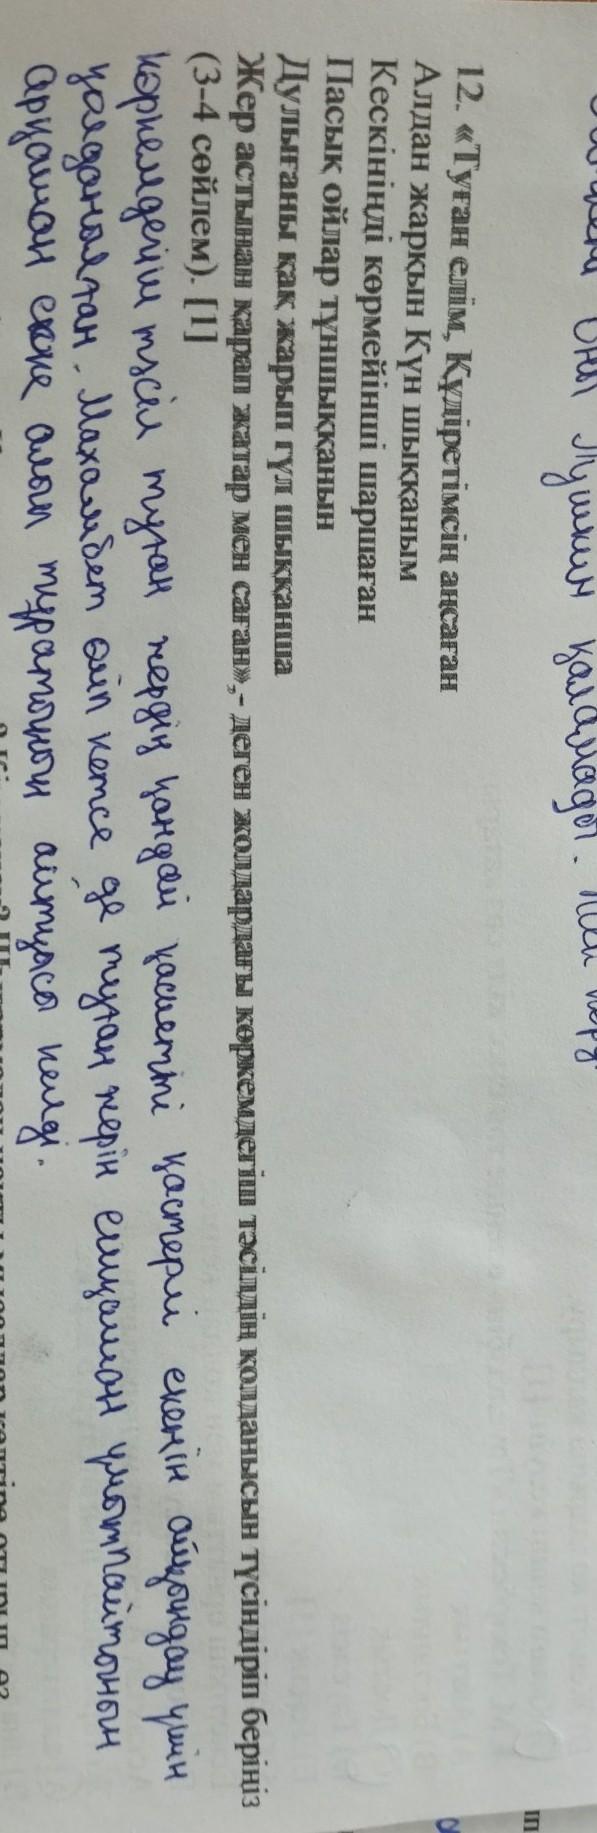 оны Пушкин қаламады.
12. «Туған елім, Құдіретімсің аңсаған
Алдан жарқын Күн шыққаным
Кескініңді көрмейінші шаршаған
Пасық ойлар тұншыққанын
Дулығаны қақ жарып гүл шыққанша
Жер астынан қарап жатар мен саған»,- деген жолдардағы көркемдегіш тәсілдің қолданысын түсіндіріп беріңіз
(3-4 сөйлем). [1]
көркемдегіш тәсіл туған жердің қандай қасиетті қастерлі екенін айқындау үшін
қолданылған. Махамбет өліп кетсе де туған жерін ешқашан ұмытпайтынын
арқашан еске алып тұратынын айтқысы келді.